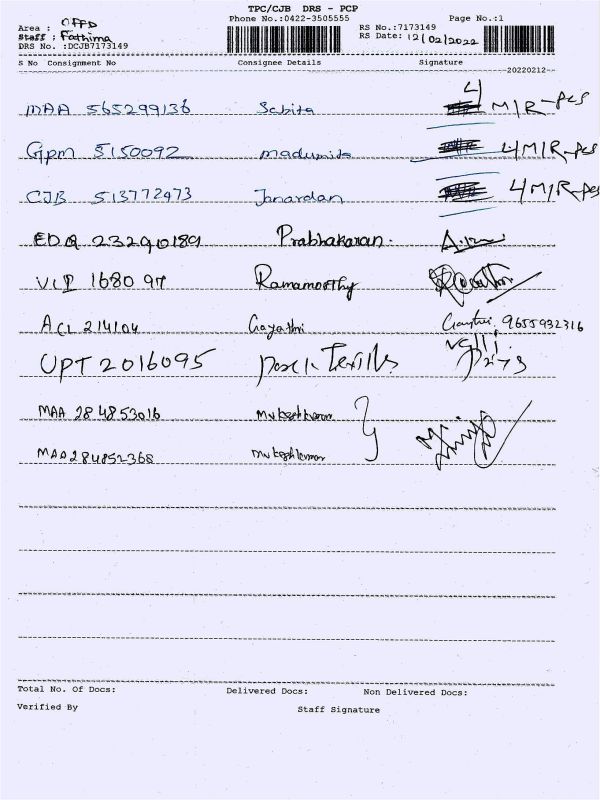 TPC/CJB DRS - PCP
Area : OFFD Phone No.:0422-3505555 RS No.:7173149 Page No.:1
Staff : Fathima RS Date: 12/02/2022
DRS No. :DCJB7173149
S No Consignment No Consignee Details Signature
20220212
MAA 565299136 Sabita 4 M/R-pcs
Gpm 5150092 madumita 4 M/R-pcs
CJB 513772473 Janardan 4 M/R-pcs
EDQ 23290189 Prabhakaran.
1680 97 Ramamoorthy
ACL 214104 Gayathri Gaythri 9655932316
UPT 2016095 Textiles
MAA 284853016 Mukeshkumar
MAA284852368 Mukeshkumar
Total No. Of Docs: Delivered Docs: Non Delivered Docs:
Verified By Staff Signature